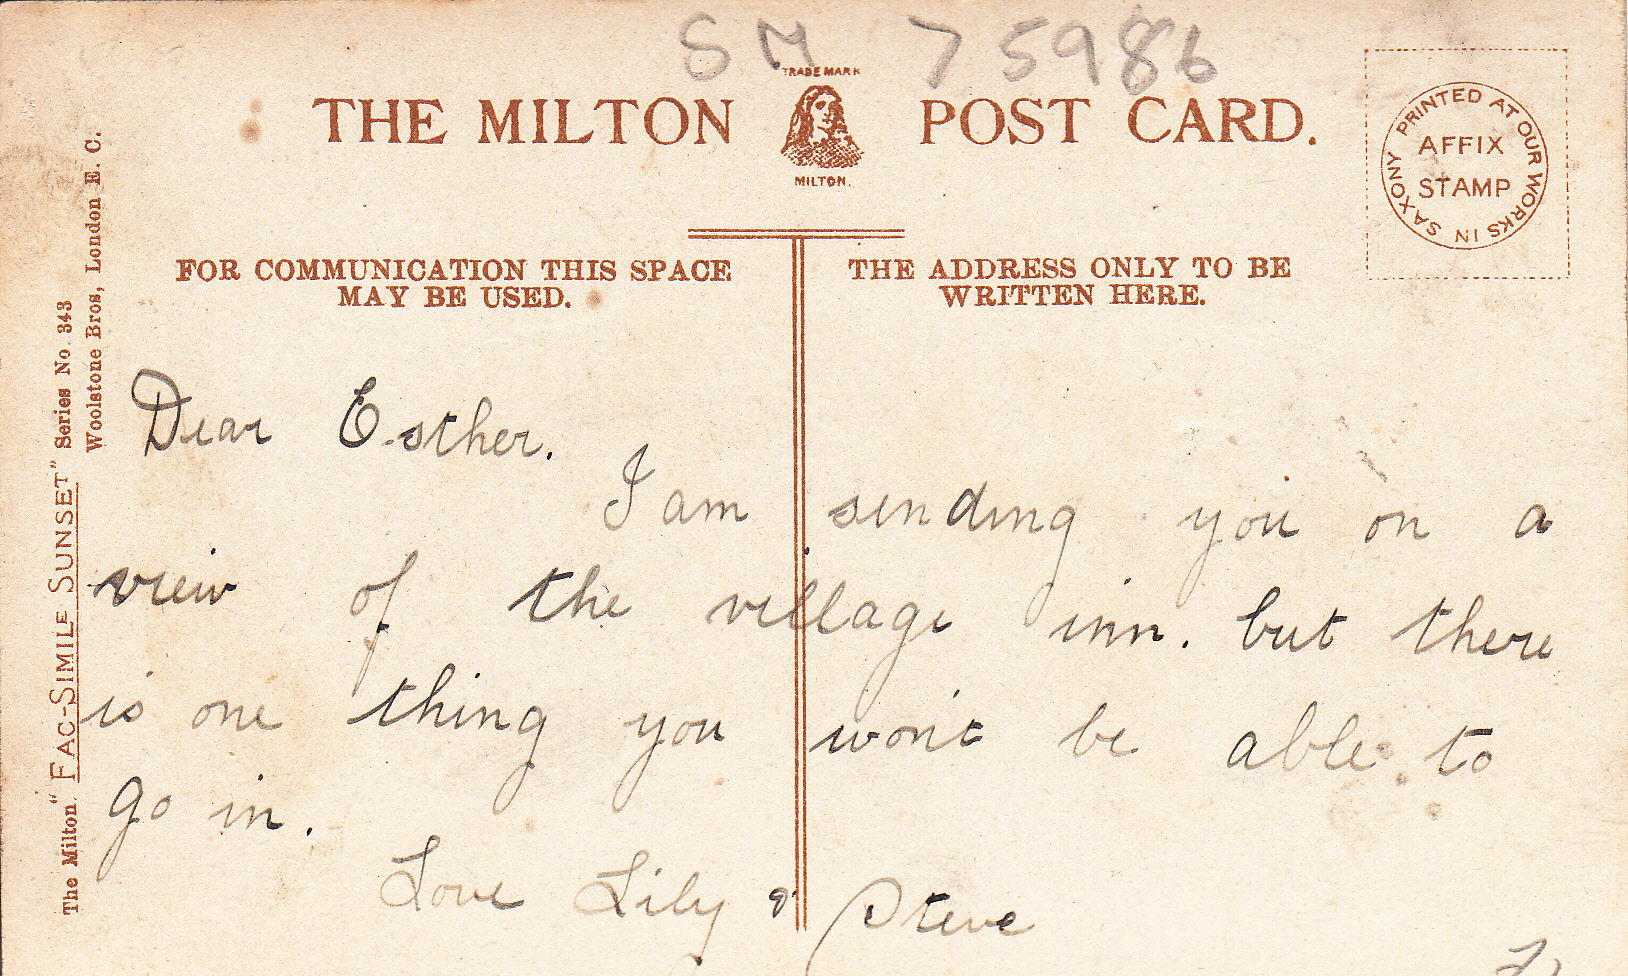 SM 75986
TRADE MARK
THE MILTON POST CARD.
MILTON.
PRINTED AT OUR WORKS IN SAXONY
AFFIX
STAMP
FOR COMMUNICATION THIS SPACE
MAY BE USED.
THE ADDRESS ONLY TO BE
WRITTEN HERE.
The Milton "FAC-SIMILE SUNSET" Series No. 343
Woolstone Bros, London E. C.
Dear Esther.
I am sending you on a
view of the village inn. but there
is one thing you won't be able to
go in.
Love Lily & Steve